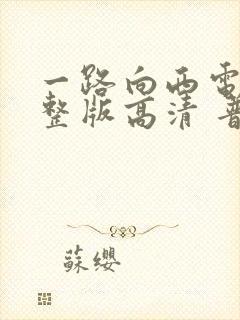 一路向西電
整版高清 普
蘇纓